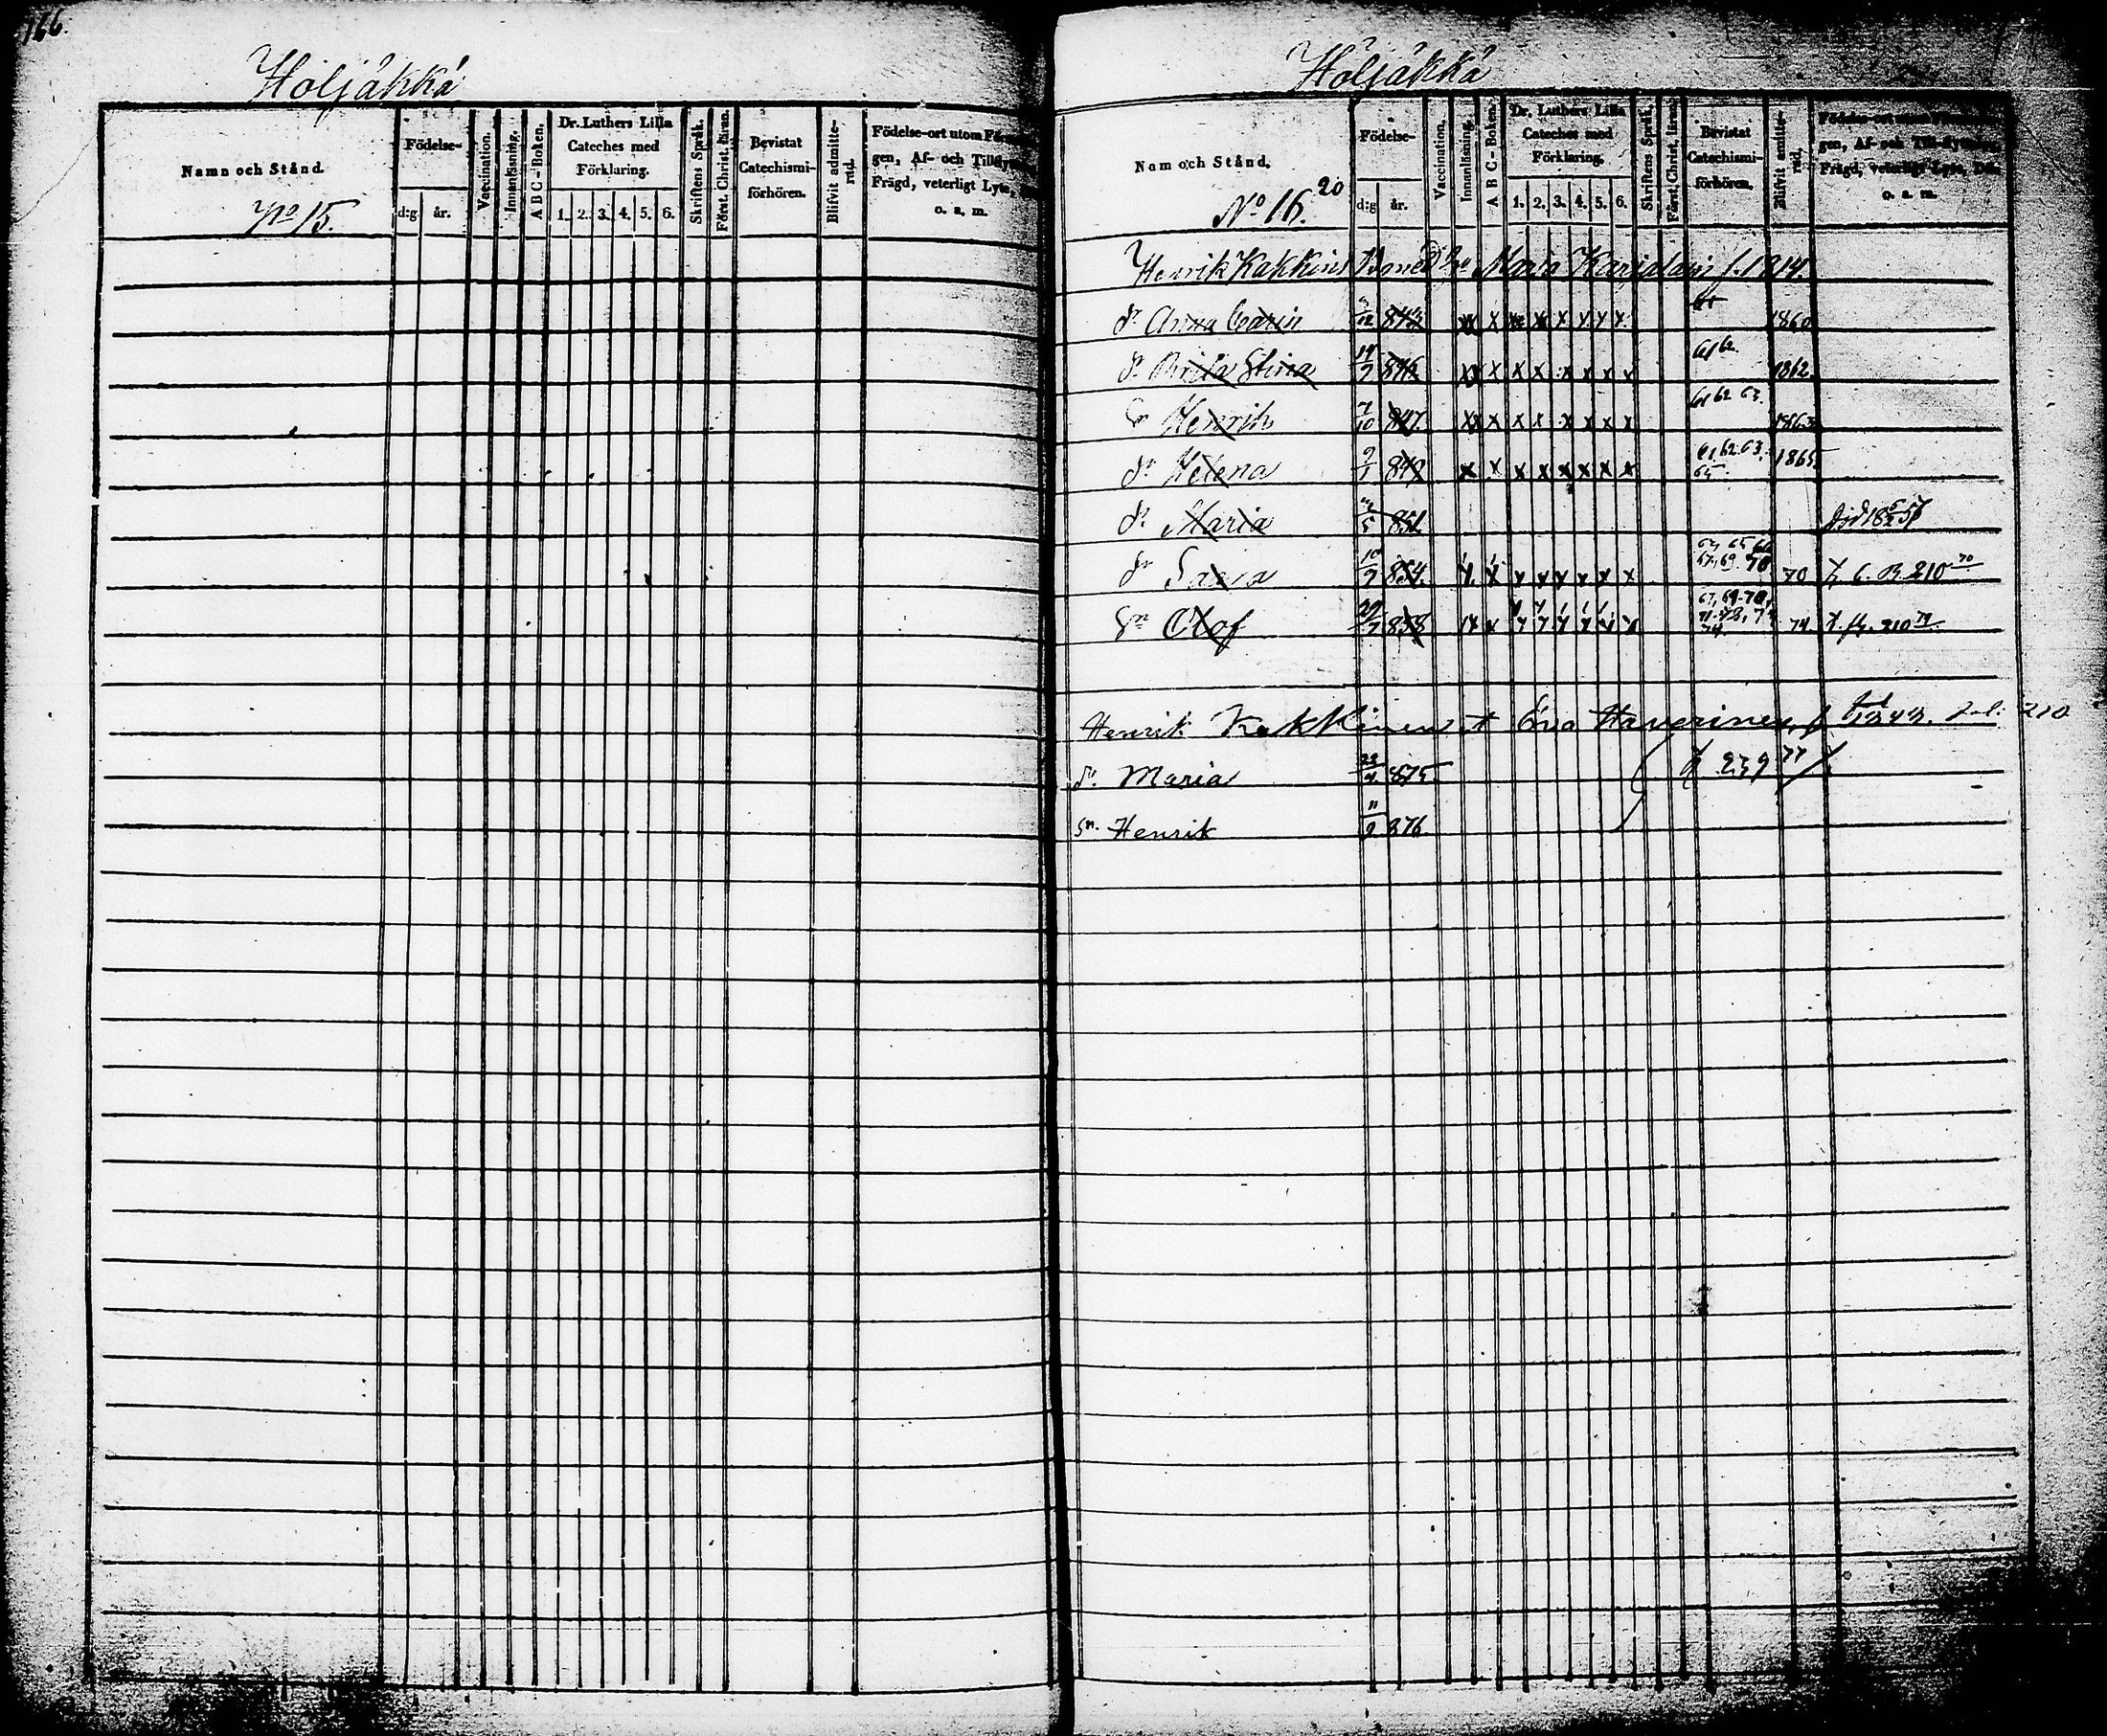 166.
Höljäkkä
Namn och Stånd.
No 15.
Födelse-
d:g år.
Vaccination.
Innanläsning.
A B C - Boken.
Dr. Luthers Lilla
Cateches med
Förklaring.
1. 2. 3. 4. 5. 6.
Skriftens Språk.
Först. Christ. läran.
Bevistat
Catechismi-
förhören.
Blifvit admitte-
rad.
Födelse-ort utom
gen, Af- och
Frägd, veterligt Lyte,
o. s. m.
Höljäkkä
Namn och Stånd.
No 16. 20
Födelse-
d:g år.
Vaccination.
Innanläsning.
A B C - Boken.
Dr. Luthers Lilla
Cateches med
Förklaring.
1. 2. 3. 4. 5. 6.
Skriftens Språk.
Först. Christ. läran.
Bevistat
Catechismi-
förhören.
Blifvit amitte-
rad.
Födelse-ort utom
gen, Af- och Till-flyttning,
Frägd, veterligt Lyte,
o. s. m.
Henrik Kakkinen Maria Karjalain f. 1814.
dr. Anna Carin 12 843 x x x x x x x x 61 1860
dr. Brita Stina 14/7 846 x x x x x x x x 61 62. 1862
Sn Henrik 7/10 847 x x x x x x x x 61 62 63. 1863
dr Helena 9/1 849 x x x x x x x x 61, 62 63, 65 1865
dr. Maria 5 851 död
dr Sara 10/9 854 x x x x x x x 67, 69. 70 70 210 70
Sn Olof 858 x x 67, 69. 70, 74 74 210 74
Henrik Kakkinen Eva Haverinen f 1843. 210
dr. Maria 23/4 875 239 77
Sn. Henrik 11/9 876